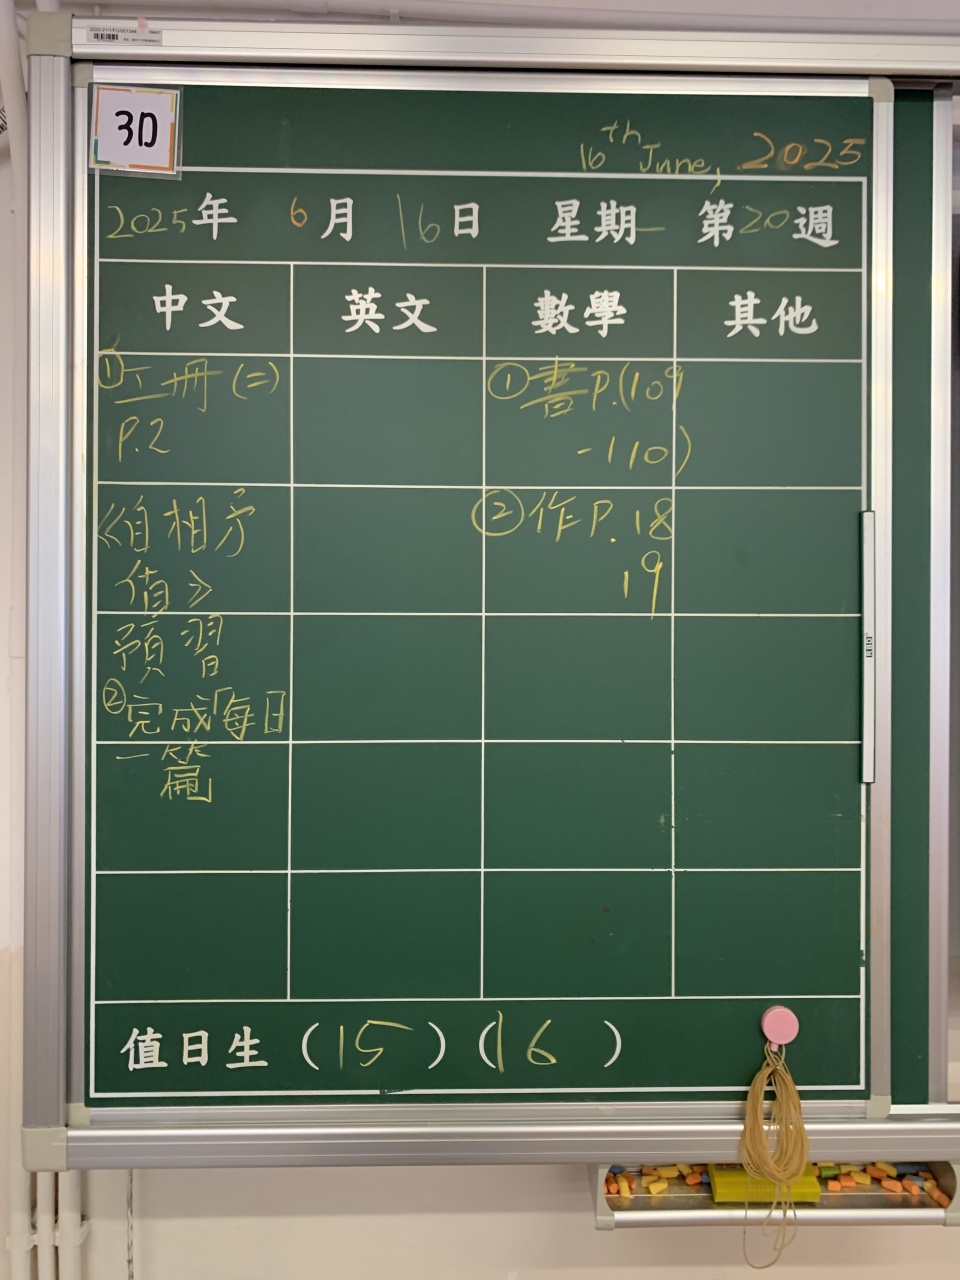 3D
16th June, 2025
2025年 6月 16日 星期一 第20週
中文 英文 數學 其他
①工冊(二)
P.2
《自相矛
值》
預習
②完成「每日
一篇」
①書P.(109
-110)
②作P.18
19
值日生 (15) (16)